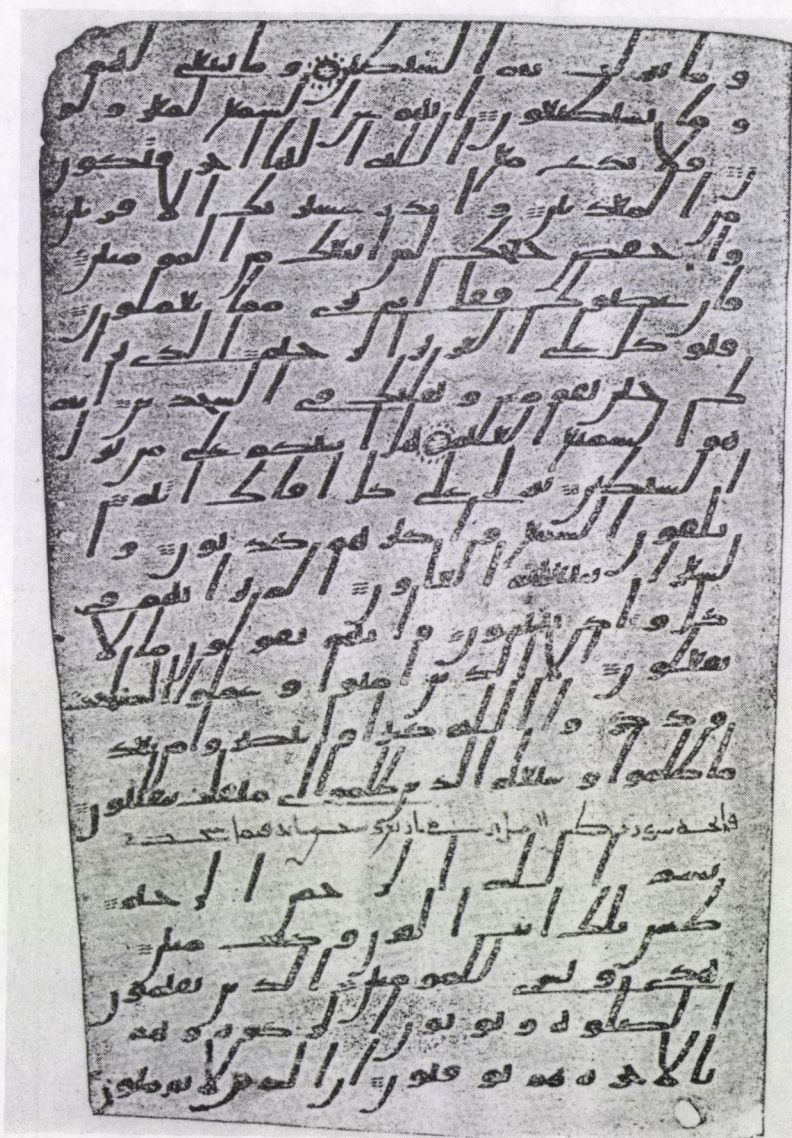 وما تنزلت به الشيطين وما ينبغي لهم
وما يستطيعون انهم عن السمع لمعزولو
ن فلا تدع مع الله الها اخر فتكون
من المعذبين وانذر عشيرتك الاقربين
واخفض جنحك لمن اتبعك من المومنين
فان عصوك فقل اني بري مما تعملون
فتوكل على العزيز الرحيم الذي ير
ىك حين تقوم وتقلبك في السجدين انه
هو السميع العليم هل انبيكم على من تنز
ل الشيطين تنزل على كل افاك اثيم
يلقون السمع واكثرهم كذبون وا
لشعرا يتبعهم الغاون الم تر انهم في
كل واد يهيمون وانهم يقولون ما لا
يفعلون الا الذين امنوا وعملوا الصلحت
وذكروا الله كثيرا وانتصروا من بعد
ما ظلموا وسيعلم الذين ظلموا اي منقلب ينقلبون
فاتحة سورة طس
بسم الله الرحمن الرحيم
طس تلك ايت القرن وكتب مبين
هدى وبشرى للمومنين الذين يقيمون
الصلوة ويوتون الزكوة وهم
بالاخرة هم يوقنون ان الذين لا يومنون